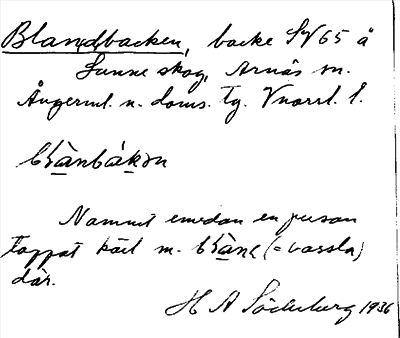 Blan(d)backen, backe SV65 å
Sunne skog, Arnäs sn.
Ångerml. n. doms. tg. Vnorrl. l.
blànbákən
Namnet emedan en person
tappat käril m. blàne (= vassla)
där.
H A Söderberg 1936